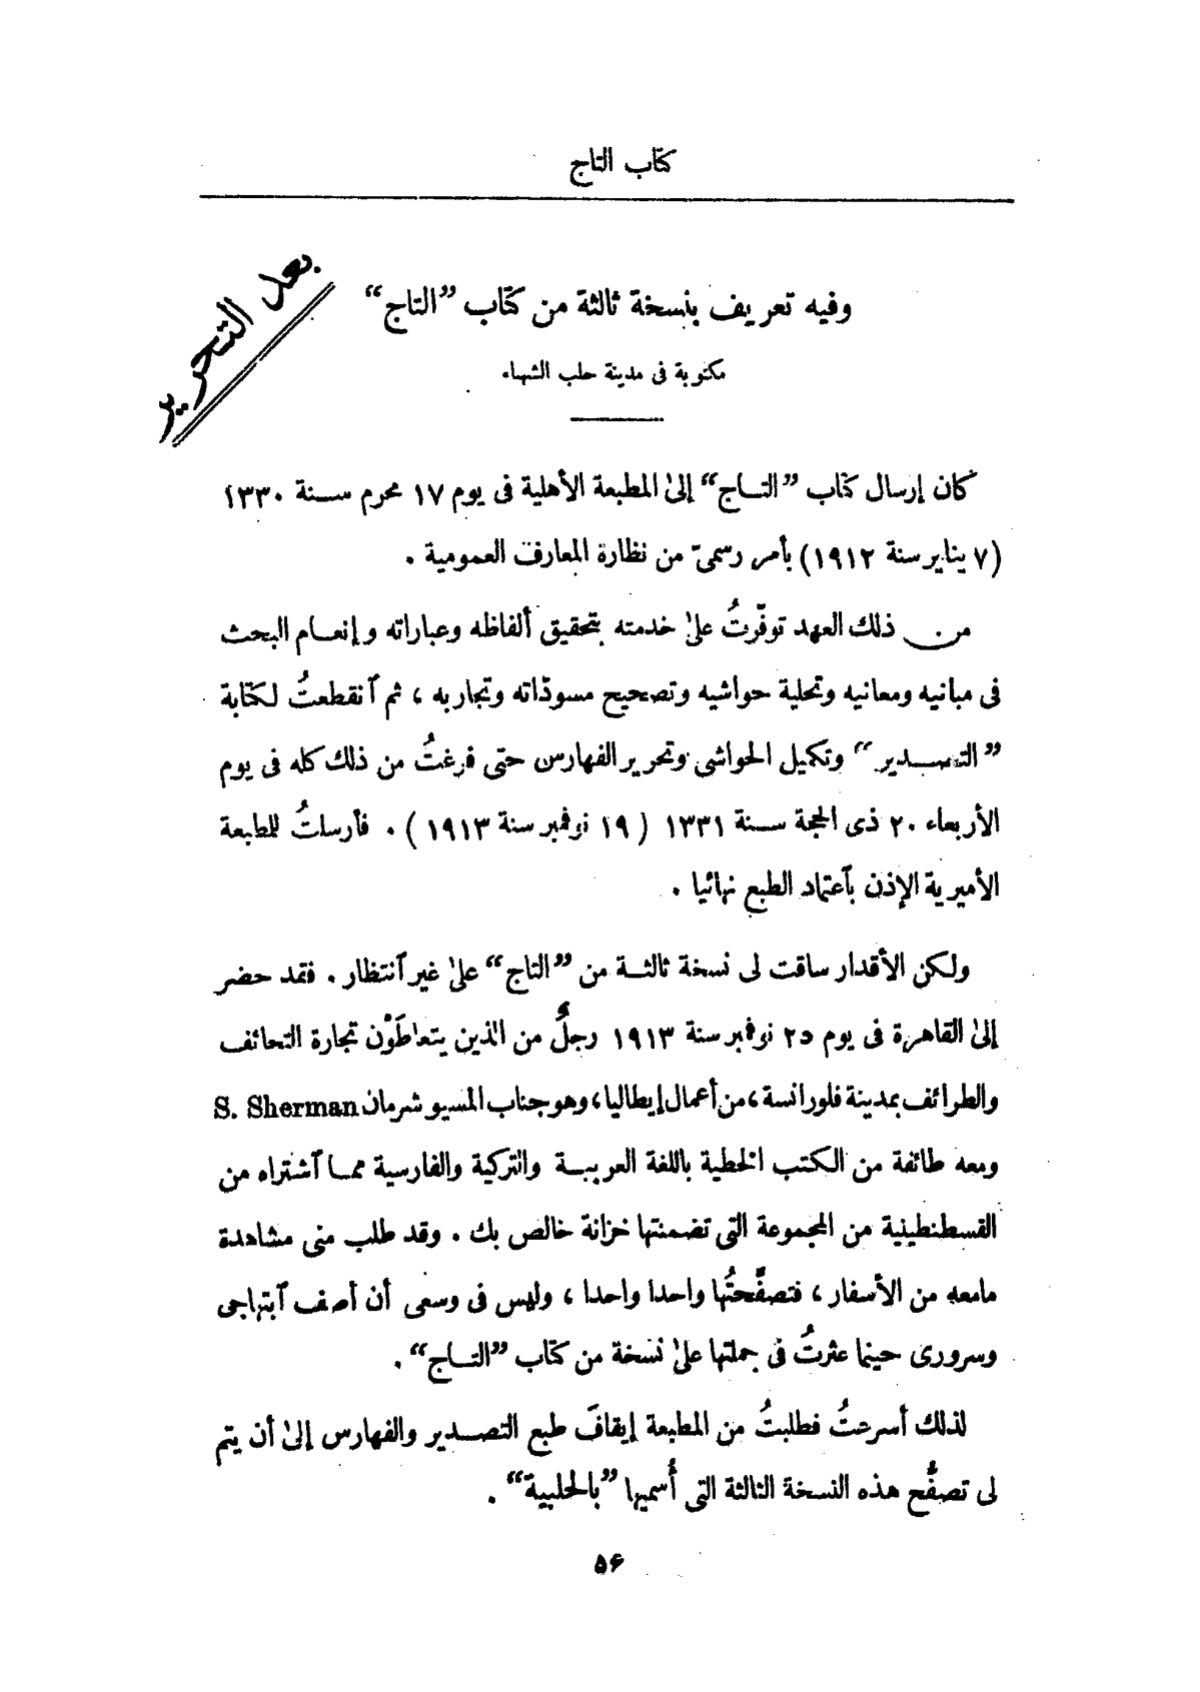 كتاب التاج
بعد التحرير
وفيه تعريف بنسخة ثالثة من كتاب "التاج"
مكتوبة فى مدينة حلب الشهباء
كان إرسال كتاب "التاج" إلىٰ المطبعة الأهلية فى يوم ١٧ محرم سنة ١٣٣٠
(٧ يناير سنة ١٩١٢) بأمر رسمىّ من نظارة المعارف العمومية .
من ذلك العهد توفّرتُ علىٰ خدمته بتحقيق ألفاظه وعباراته وإنعام البحث
فى مبانيه ومعانيه وتحلية حواشيه وتصحيح مسودّاته وتجاربه ، ثم ٱنقطعتُ لكتابة
"التصدير" وتكميل الحواشى وتحرير الفهارس حتى فرغتُ من ذلك كله فى يوم
الأربعاء ٢٠ ذى الحجة سنة ١٣٣١ (١٩ نوفمبر سنة ١٩١٣) . فأرسلتُ للمطبعة
الأميرية الإذن بٱعتماد الطبع نهائيا .
ولكن الأقدار ساقت لى نسخة ثالثة من "التاج" علىٰ غير ٱنتظار . فقد حضر
إلىٰ القاهرة فى يوم ٢٥ نوفمبر سنة ١٩١٣ رجلٌ من الذين يتعاطَوْن تجارة التحائف
والطرائف بمدينة فلورانسة ، من أعمال إيطاليا ، وهو جناب المسيو شرمان S. Sherman
ومعه طائفة من الكتب الخطية باللغة العربية والتركية والفارسية مما ٱشتراه من
القسطنطينية من المجموعة التى تضمنتها خزانة خالص بك . وقد طلب منى مشاهدة
مامعه من الأسفار ، فتصفَّحتُها واحدا واحدا ، وليس فى وسعى أن أصف ٱبتهاجى
وسرورى حينما عثرتُ فى جملتها علىٰ نسخة من كتاب "التاج" .
لذلك أسرعتُ فطلبتُ من المطبعة إيقافَ طبع التصدير والفهارس إلىٰ أن يتم
لى تصفُّح هذه النسخة الثالثة التى أُسميها "بالحلبية" .
٥۶